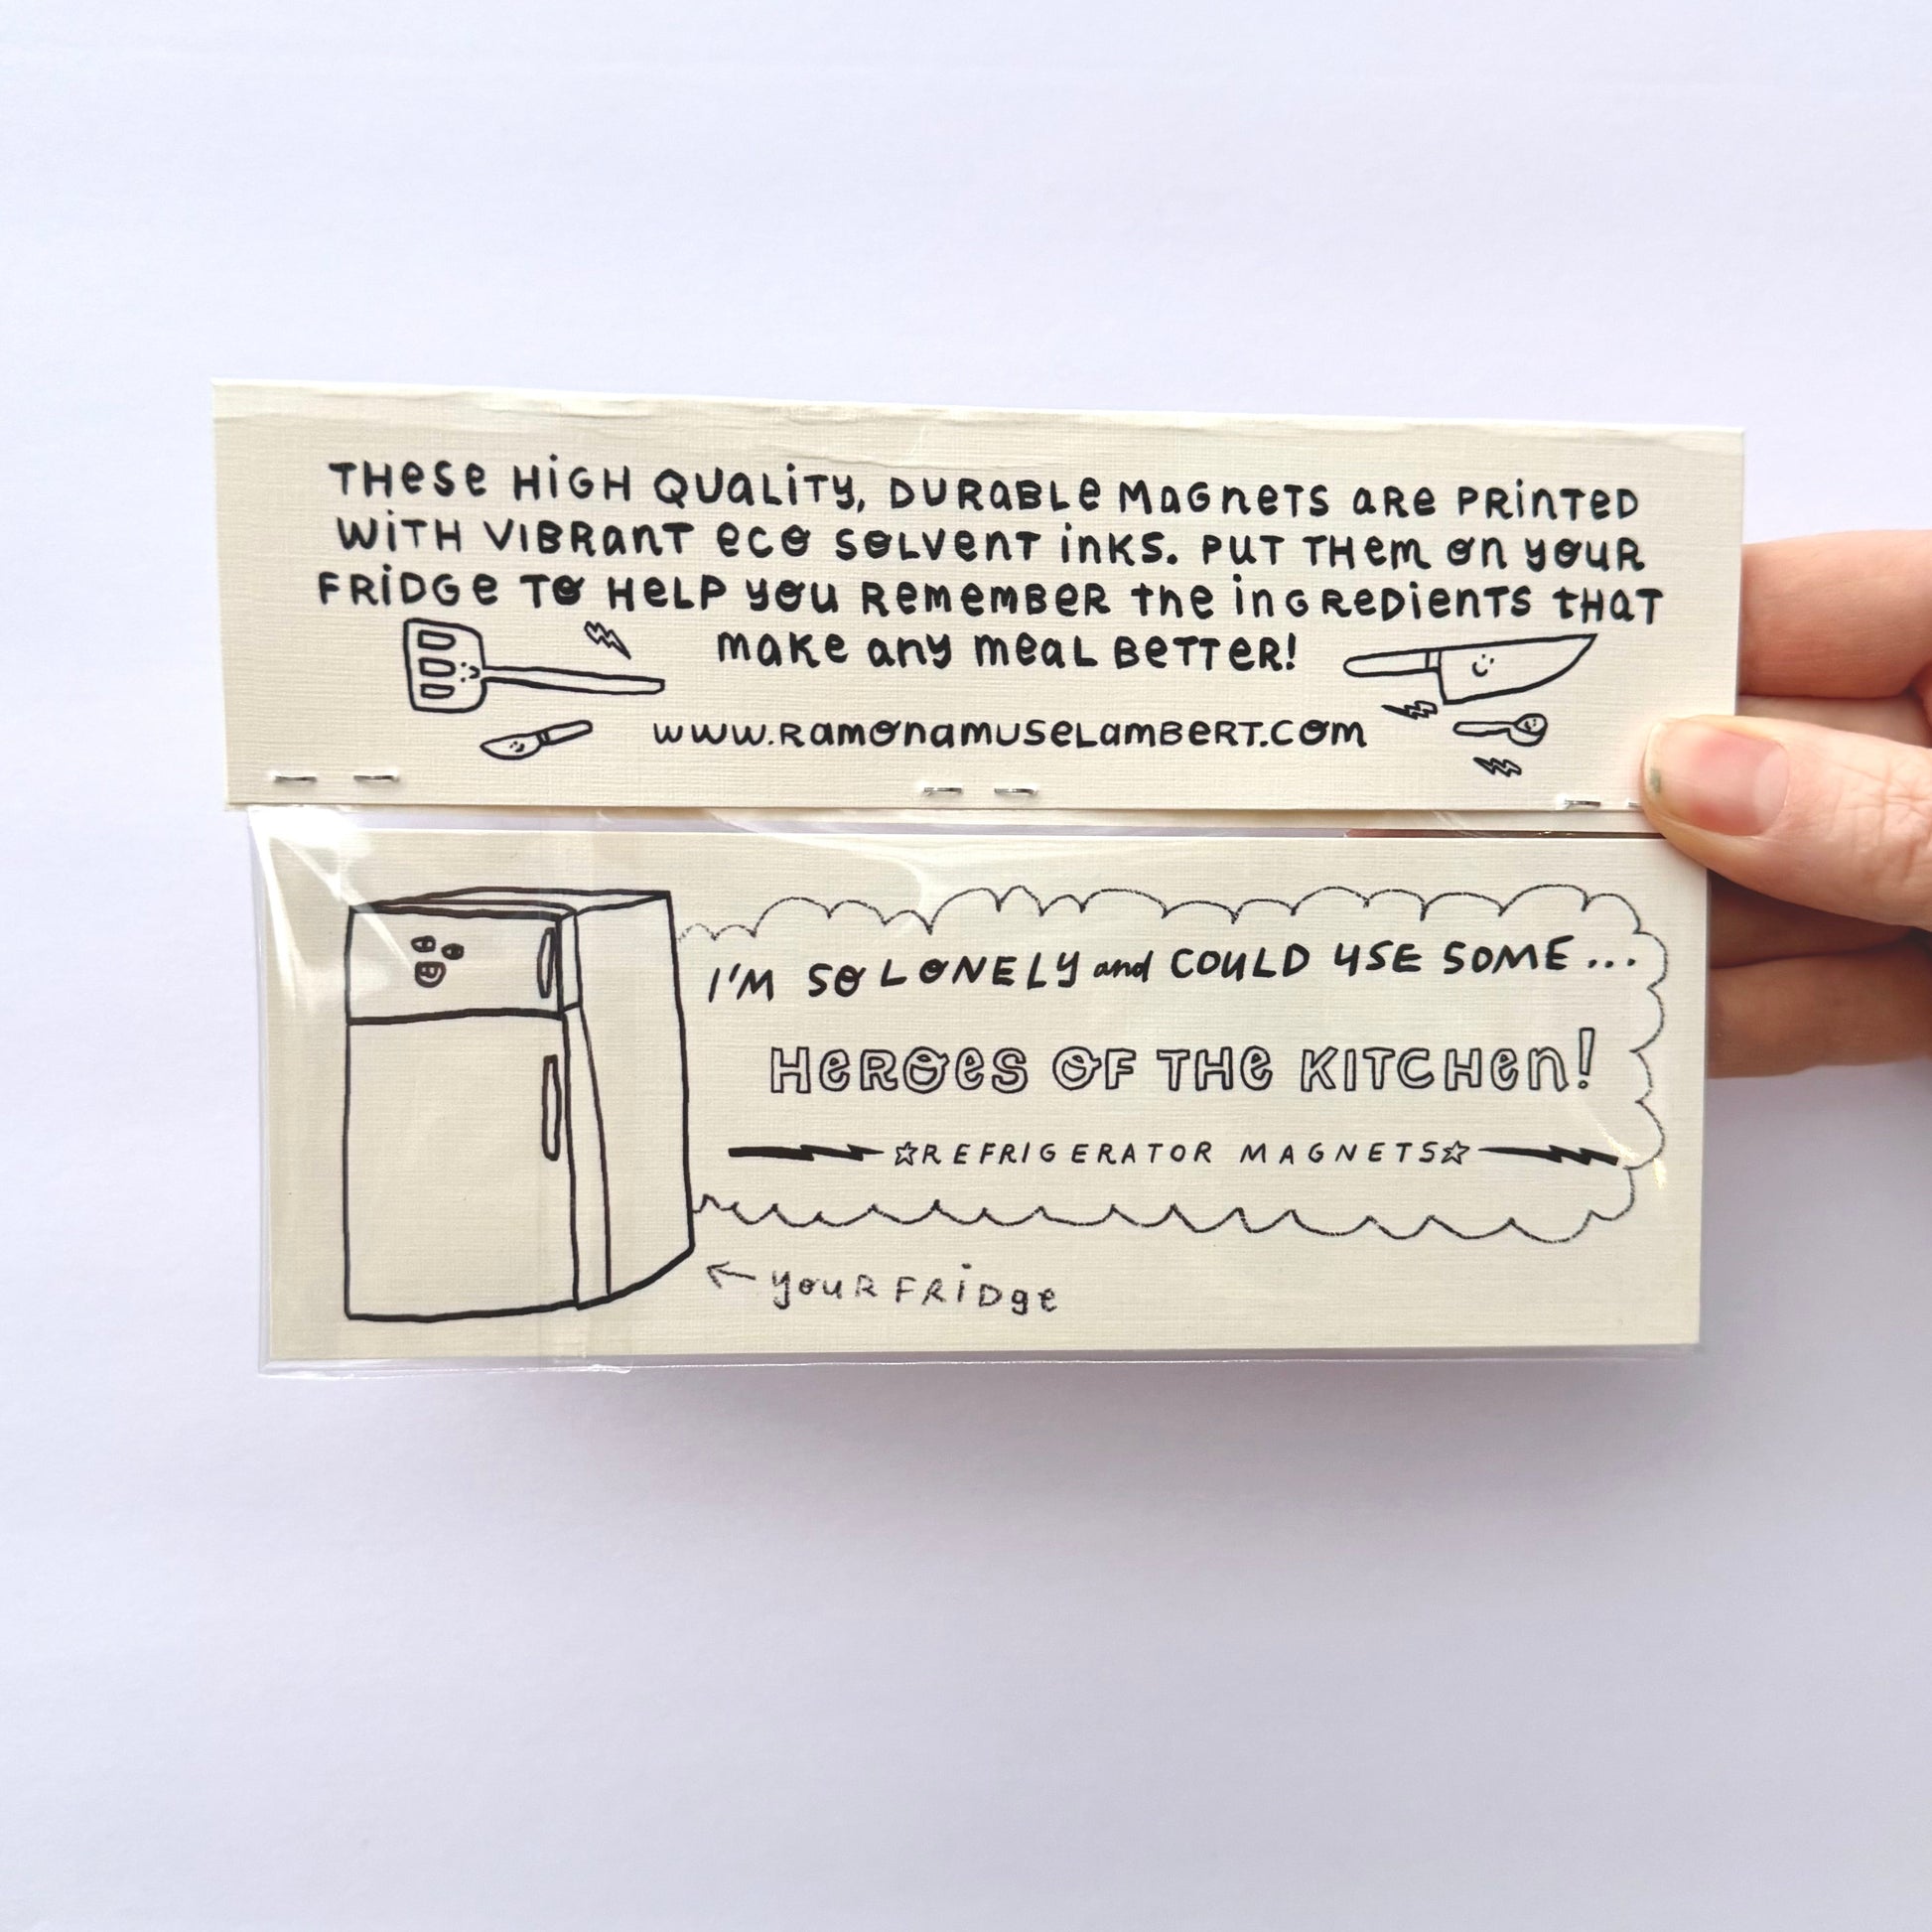 THESE HIGH QUALITY, DURABLE MAGNETS ARE PRINTED
WITH VIBRANT ECO SOLVENT INKS. PUT THEM ON YOUR
FRIDGE TO HELP YOU REMEMBER THE INGREDIENTS THAT
MAKE ANY MEAL BETTER!
WWW.RAMONAMUSELAMBERT.COM
I'M SO LONELY and COULD USE SOME...
HEROES OF THE KITCHEN!
☆REFRIGERATOR MAGNETS☆
← YOUR FRIDGE